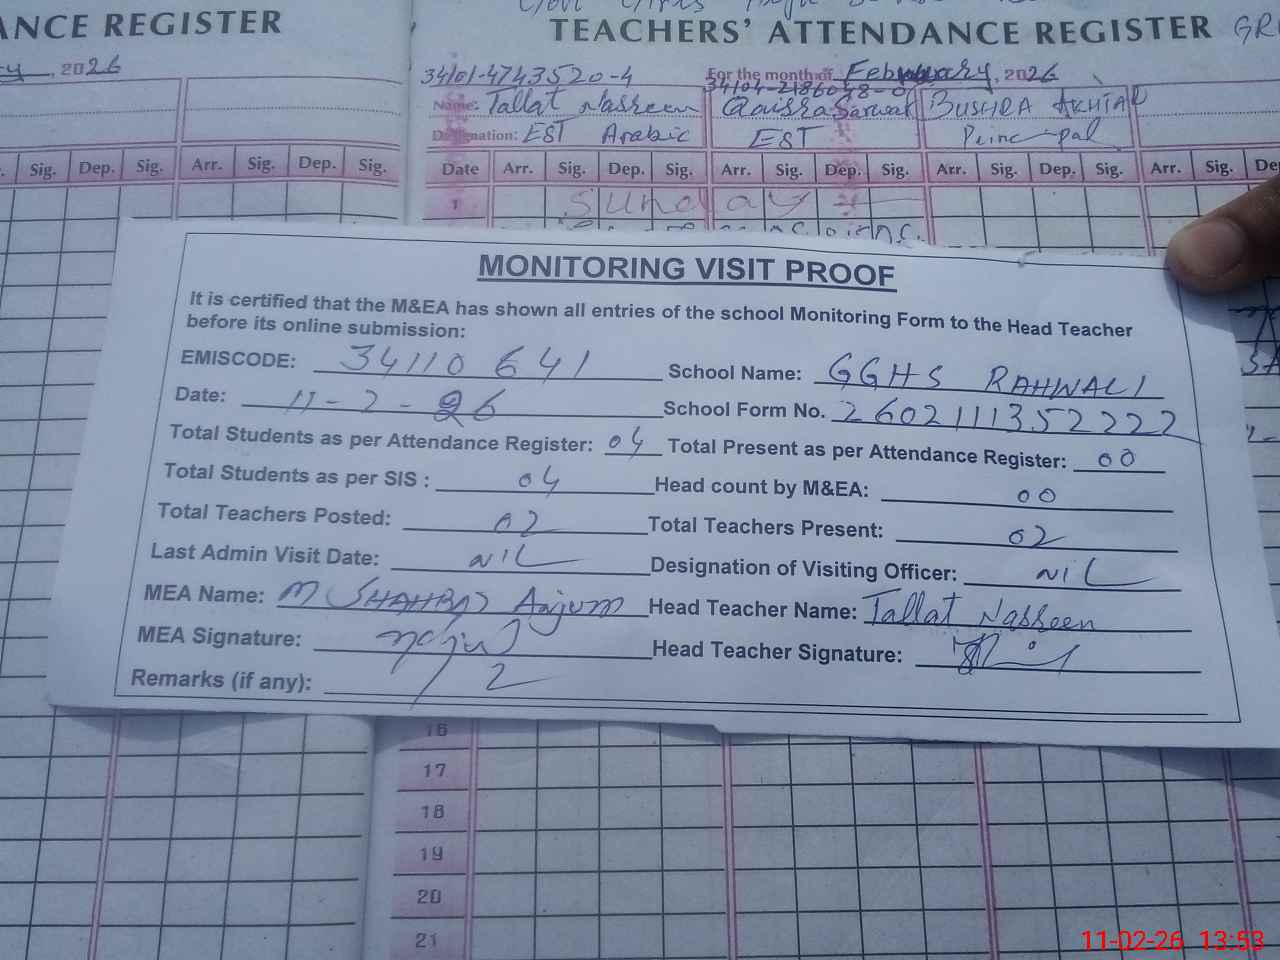 ANCE REGISTER
TEACHERS' ATTENDANCE REGISTER
y, 2026
34101-4743520-4
For the month of February, 2026
34104-2186048-0
Name: Tallat Nasseen
Qaisra Sarwar
BUSHRA AKHTAR
Designation: EST Arabic
EST
Principal
Sig. Dep. Sig. Arr. Sig. Dep. Sig.
Date Arr. Sig. Dep. Sig. Arr. Sig. Dep. Sig. Arr. Sig. Dep. Sig. Arr. Sig. De
1 Sunday
MONITORING VISIT PROOF
It is certified that the M&EA has shown all entries of the school Monitoring Form to the Head Teacher
before its online submission:
EMISCODE: 34110641 School Name: GGHS RAHWALI
Date: 11-2-26 School Form No. 2602111352222
Total Students as per Attendance Register: 04 Total Present as per Attendance Register: 00
Total Students as per SIS : 04 Head count by M&EA: 00
Total Teachers Posted: 02 Total Teachers Present: 02
Last Admin Visit Date: NIL Designation of Visiting Officer: NIL
MEA Name: M SHAHBAZ Anjum Head Teacher Name: Tallat Nasseen
MEA Signature: Head Teacher Signature:
Remarks (if any):
16
17
18
19
20
21
11-02-26 13:53